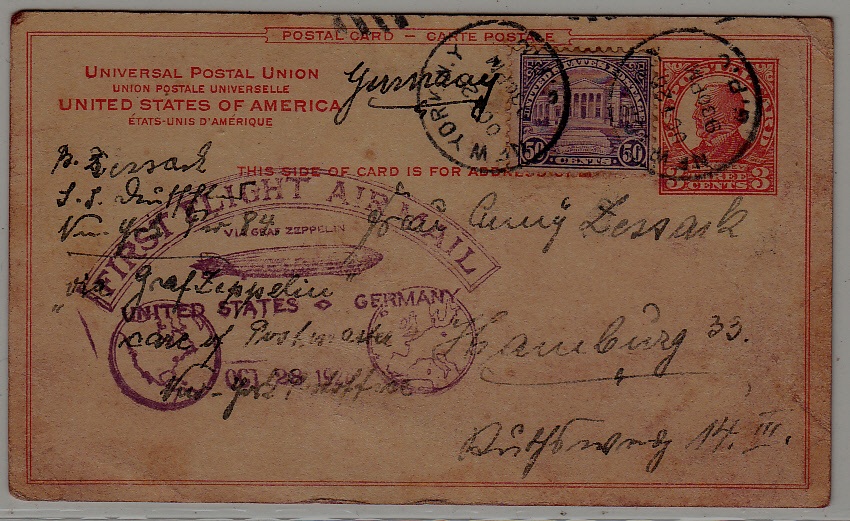 POSTAL CARD — CARTE POSTALE
UNIVERSAL POSTAL UNION
UNION POSTALE UNIVERSELLE
UNITED STATES OF AMERICA
ÉTATS-UNIS D'AMÉRIQUE
Germany
NEW YORK
50 CENTS 50
3 THREE CENTS 3
THIS SIDE OF CARD IS FOR ADDRESS
B. Zessack
S.S.
New York Pier 84
Zessack
FIRST FLIGHT AIR MAIL
VIA GRAF ZEPPELIN
"via Graf Zeppelin"
UNITED STATES ◇ GERMANY
care of Postmaster
Hamburg 33.
OCT 28 19
New-York
14. III.